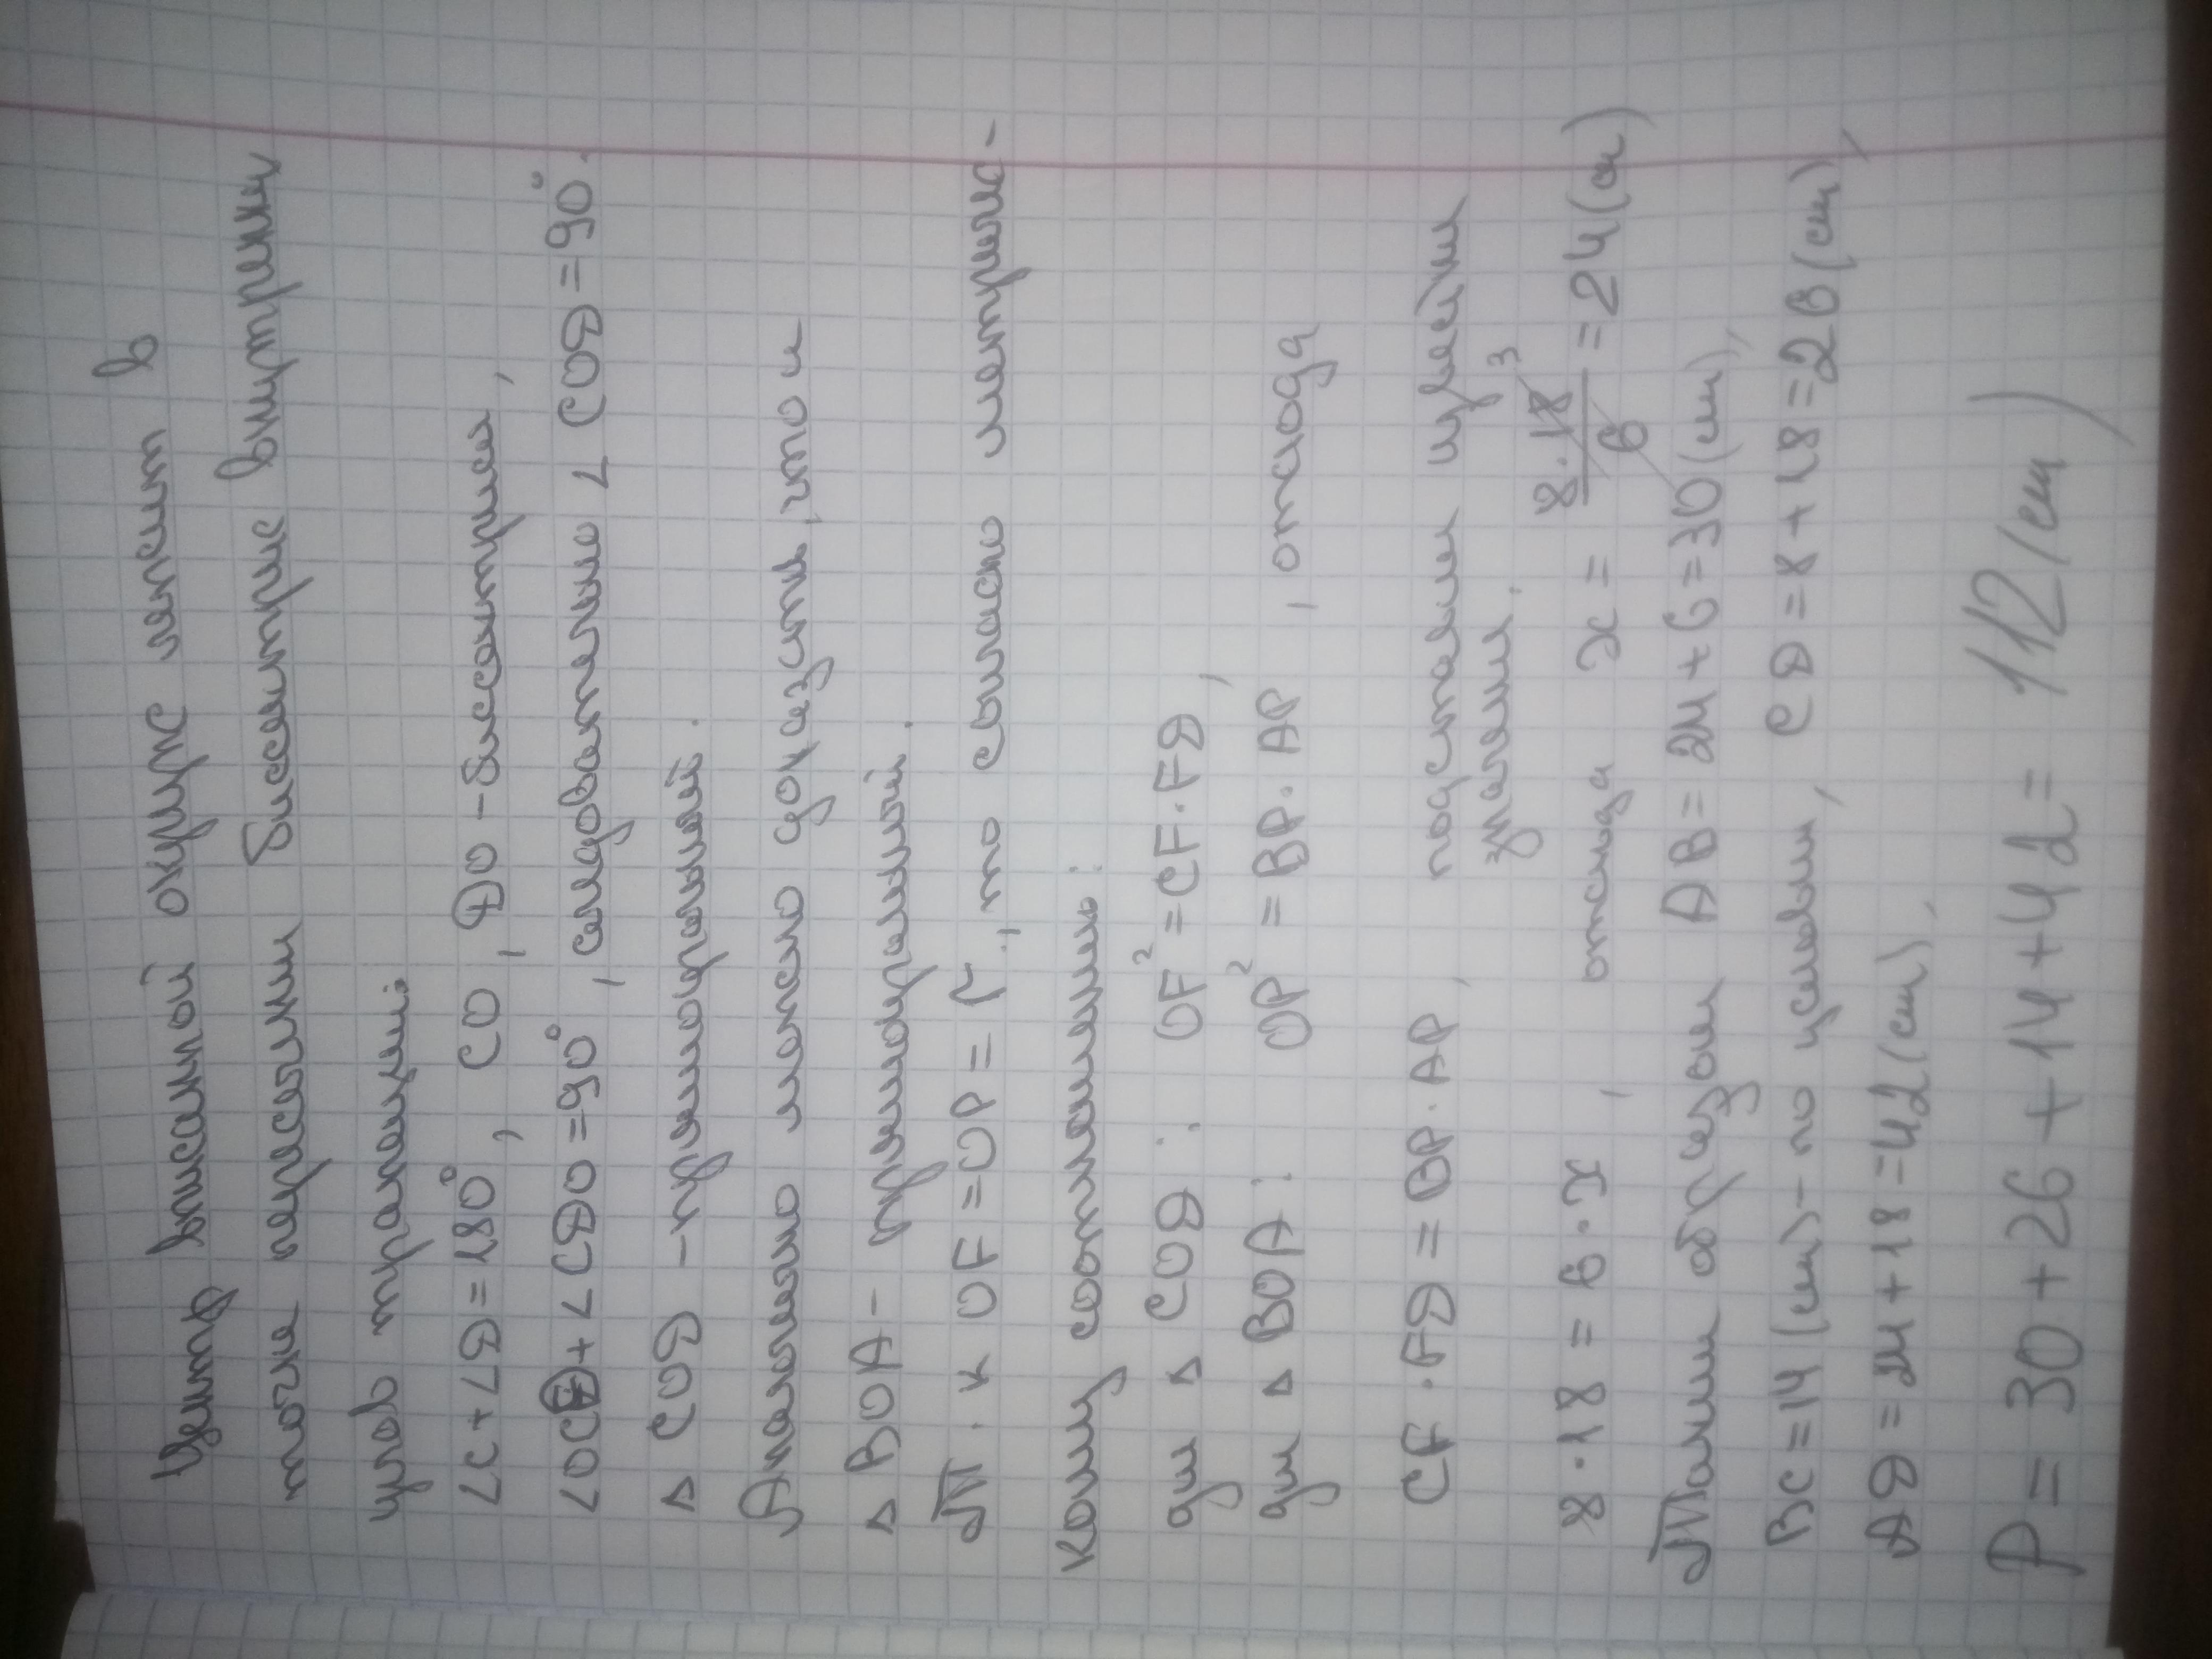 Центр вписанной окруж лежит в
точке пересечки биссектрис внутренних
углов трапеции.
∠C+∠D=180°, CO, DO - биссектрисы,
∠OCD+∠CDO=90°, следовательно ∠COD=90°.
△ COD - прямоугольный.
Аналогично можно доказать, что и
△ BOA - прямоугольный.
Т. к OF=OP=r., то согласно метричес-
кому соотношению:
для △ COD: OF²=CF·FD,
для △ BOA: OP²=BP·AP, отсюда
CF·FD=BP·AP, подставим известн
значения.
8·18=6·x, отсюда x= 8·18/6 3 =24(см)
Таким образом AB=24+6=30(см),
BC=14(см)- по условию, CD=8+18=26(см),
AD=24+18=42(см).
P=30+26+14+42=112(см)